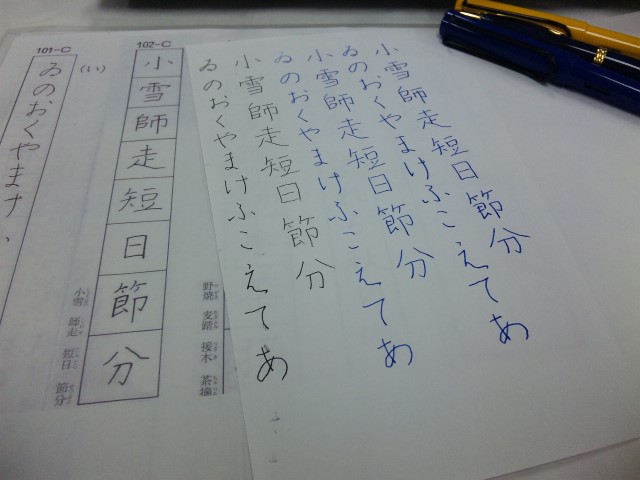 小雪師走短日節分
ゐのおくやまけふこえてあ
小雪師走短日節分
ゐのおくやまけふこえてあ
小雪師走短日節分
ゐのおくやまけふこえてあ
野焼 麦踏 接木 茶摘
102-C
小雪師走短日節分
小雪 師走 短日 節分
(い)
101-C
ゐのおくやまけ